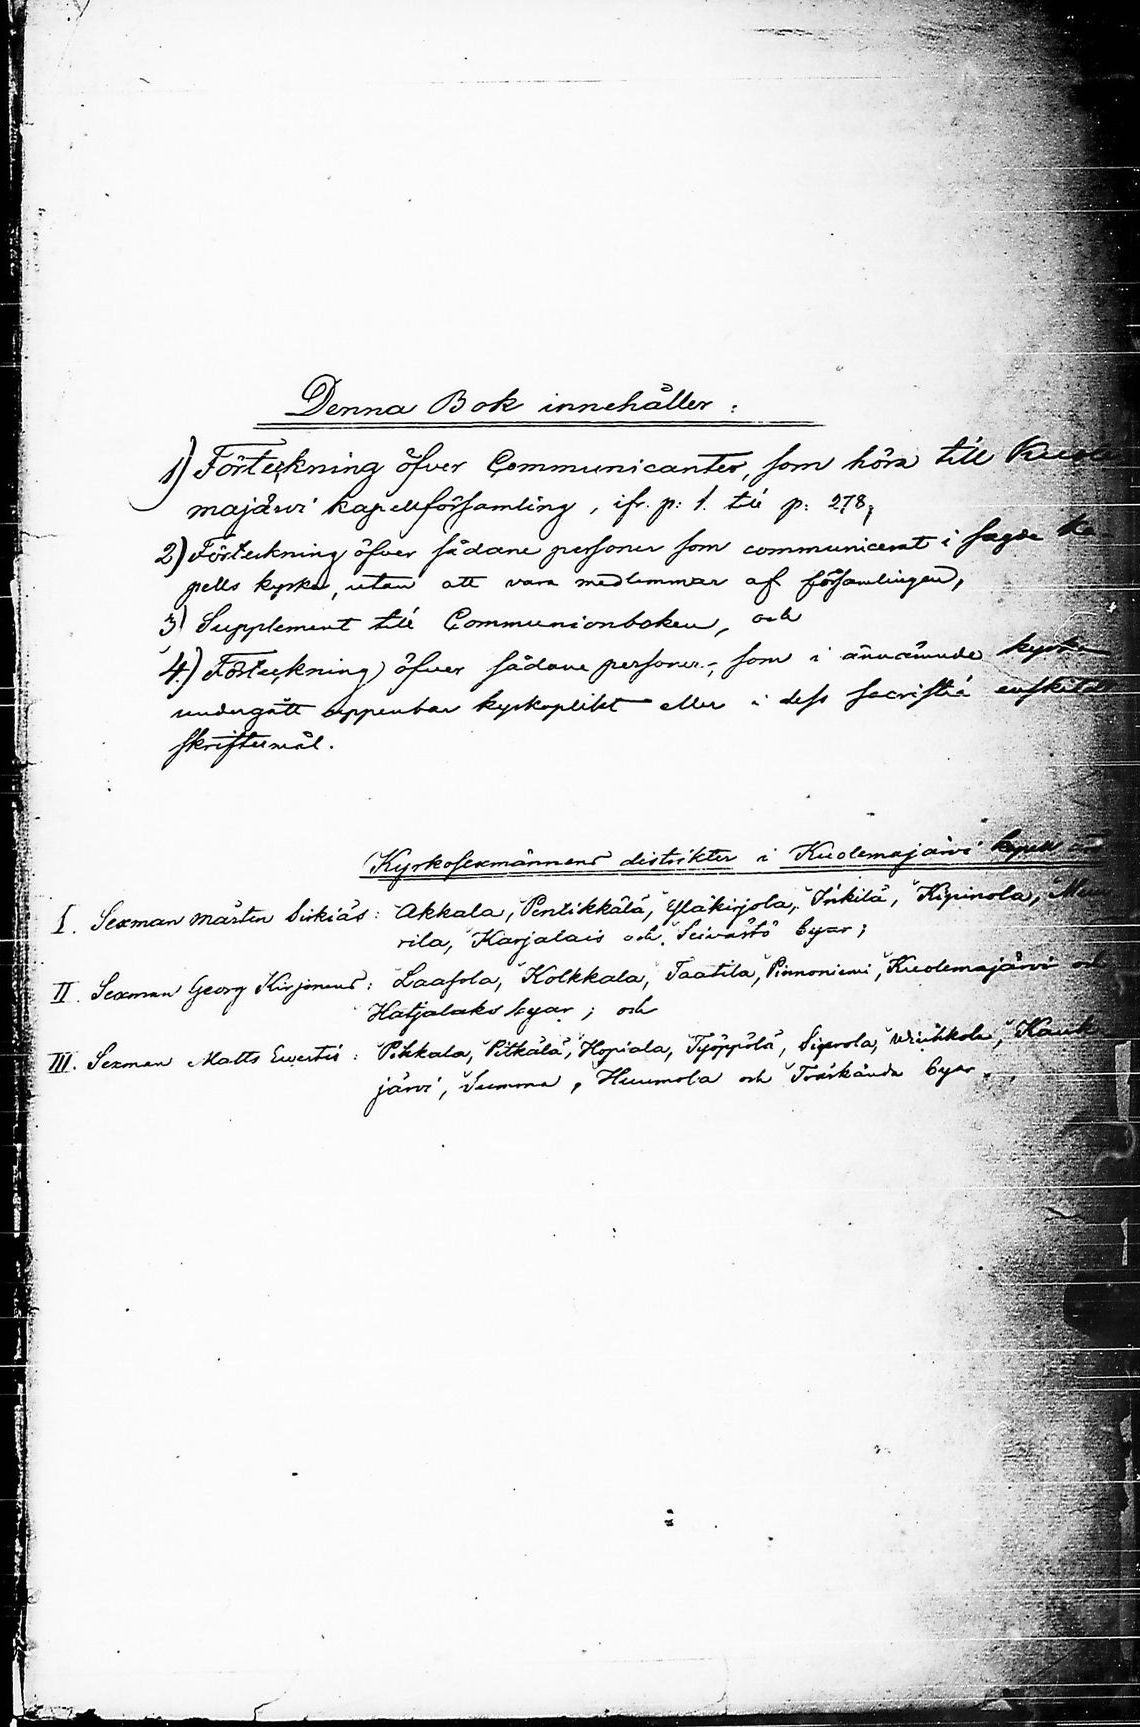 Denna Bok innehåller:
1) Förteckning öfver Communicanter, som höra till Kuole
majärvi kapellförsamling, ifr. p: 1. till p: 278;
2) Förteckning öfver sådane personer som communicerat i sagde ka-
pells kyrka, utan att vara medlemmar af församlingen,
3) Supplement till Communionboken, och
4.) Förteckning öfver sådane personer, som i ännämnde kyrka
undergått uppenbar kyrkoplikt eller i dess sacristia enskildt
skriftermål.
Kyrkosexmännens distrikter i Kuolemajärvi
I. Sexman Mårten Sirkiäs: Akkala, Pentikkälä, Yläkirjola, Inkilä, Kipinola, Mu
rila, Karjalais och Seivästö byar;
II. Sexman Georg Kirjonens: Laasola, Kolkkala, Taatila, Pinnoniemi, Kuolemajärvi och
Hatjalaks byar; och
III. Sexman Matts Ewertis: Pihkala, Pitkälä, Hopiala, Työppölä, Siprola, Kauk
järvi, Summa, Huumola och Träskända byar.